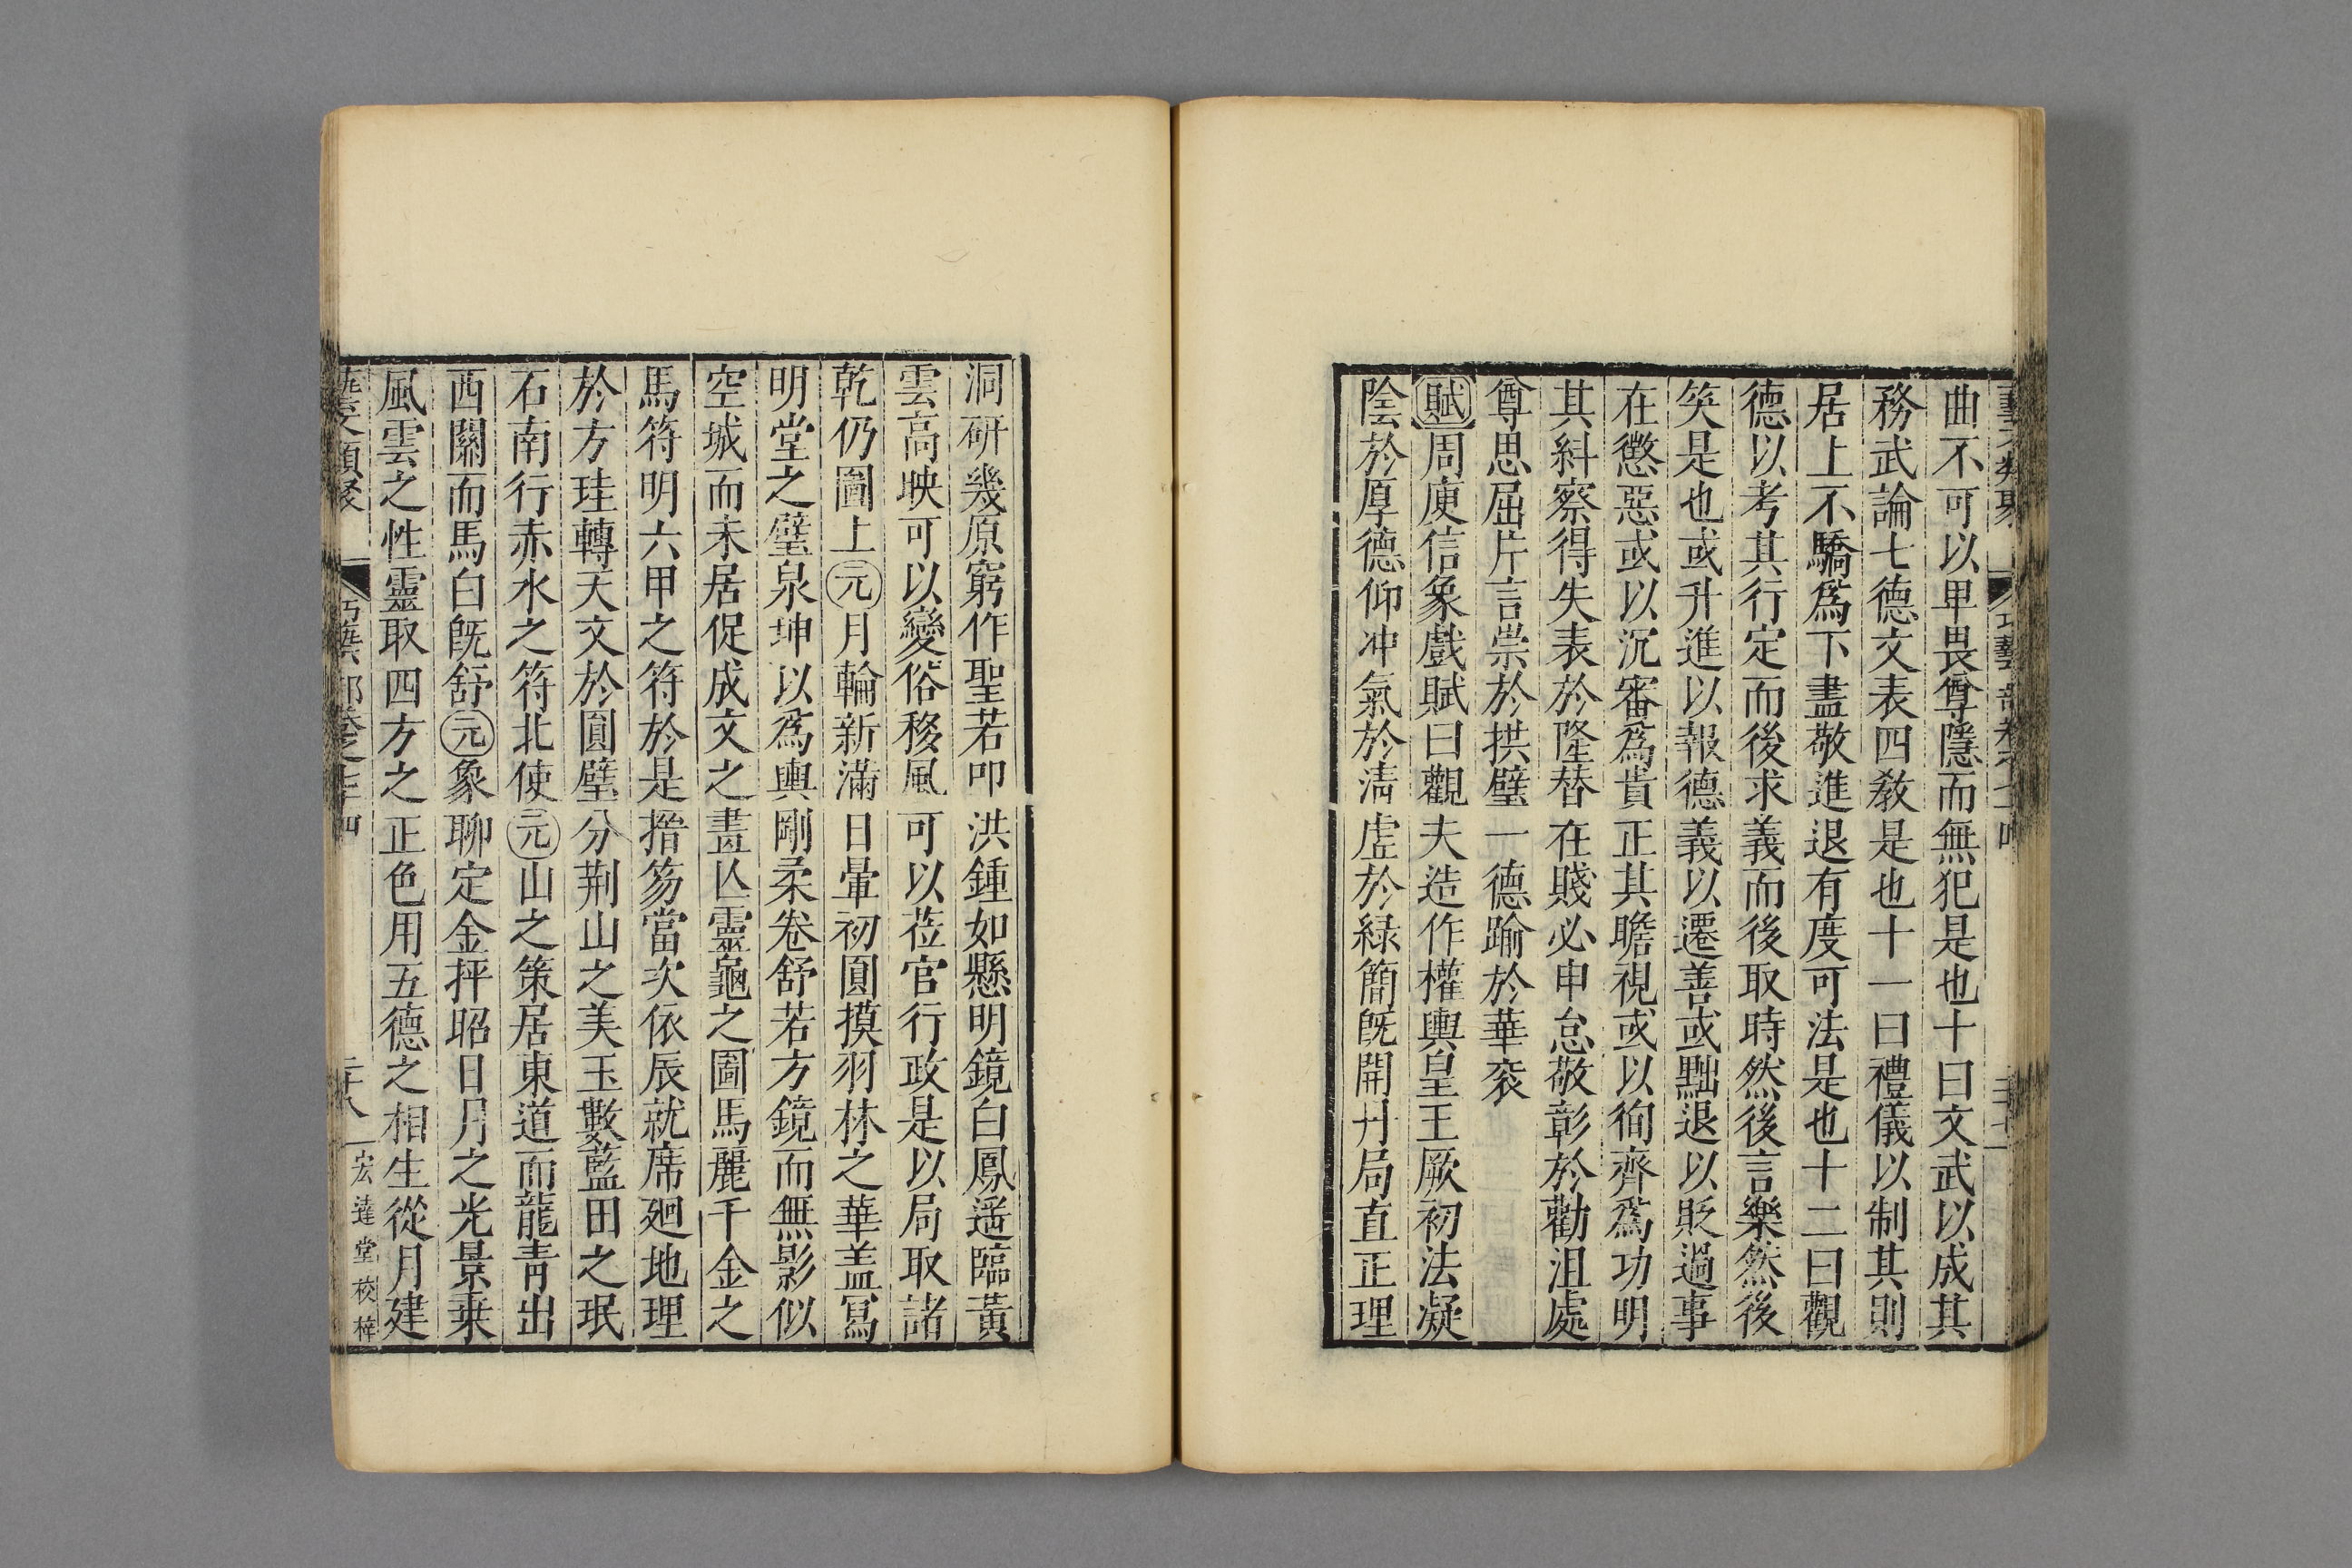 曲不可以卑畏尊隱而無犯是也十曰文武以成其
務武論七德文表四教是也十一曰禮儀以制其則
居上不驕爲下盡敬進退有度可法是也十二曰觀
德以考其行定而後求義而後取時然後言樂然後
笑是也或升進以報德義以遷善或黜退以貶過事
在懲惡或以沉審爲貴正其瞻視或以徇齊爲功明
其糾察得失表於隆替在賤必申怠敬彰於勸沮處
尊思屈片言崇於拱璧一德踰於華衮
賦周庾信象戲賦曰觀夫造作權輿皇王厥初法凝
陰於厚德仰冲氣於清虛於緑簡旣開丹局直正理
洞研幾原窮作聖若叩洪鍾如懸明鏡白鳳遥臨黃
雲高映可以變俗移風可以莅官行政是以局取諸
乾仍圖上元月輪新滿日暈初圓摸羽林之華盖冩
明堂之璧泉坤以爲輿剛柔卷舒若方鏡而無影似
空城而未居促成文之畫亾靈龜之圖馬麗千金之
馬符明六甲之符於是搢笏當次依辰就席廻地理
於方珪轉天文於圓璧分荆山之美玉數藍田之珉
石南行赤水之符北使元山之策居東道而龍青出
西關而馬白旣舒元象聊定金抨昭日月之光景乗
風雲之性靈取四方之正色用五德之相生從月建
宏達堂校梓